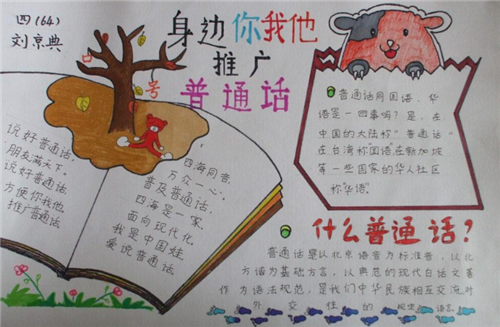 四（64）
刘京典
身边你我他
推广
普通话
说好普通话，
朋友满天下，
说好普通话
方便你我他，
推广普通话
四海同音，
万众一心，
普及普通话
四海是一家.
面向现代化，
我是中国娃，
爱说普通话.
普通话同国语、华
语是一回事吗？是，在
中国的大陆称"普通话"
在台湾称国语在新加坡
等一些国家的华人社区
称华语.
什么普通话？
普通话是以北京语音为标准音，以北
方话为基础方言，以典范的现代白话文著
作为语法规范，是我们中华民族相互交流对
外交往的 语言